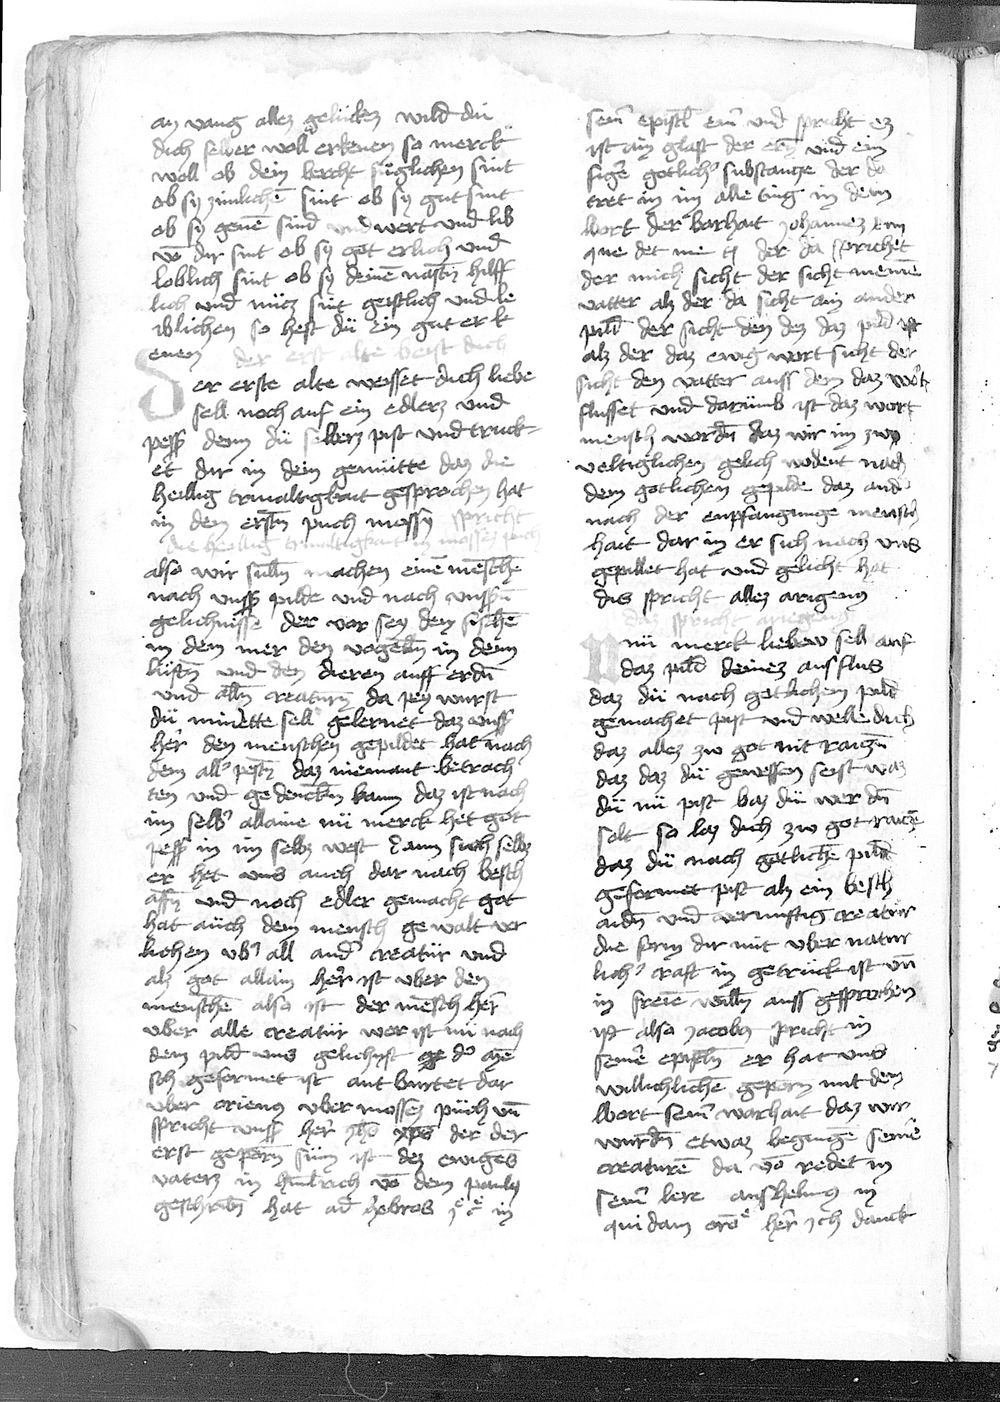 an vang allez gelückez wild dü
dich selber woll erkenen so merck
woll ob dein bercht füglichen sint
ob sÿ zimlichē sint ob sÿ gut sint
ob sÿ genē sind und wert und lib
vō dir sint ob sÿ got erlich und
loblich sint ob sÿ deinē nästn̄ hilff
lich und nücz sint geistlich und le
iblichen so hest dü ein gut er k
enen der erst alte beist dich
Der erste alte weisset dich liebe
sell noch auf ein edlerz und
pesß denn dü selberz pist und truck
et dir in dein gemütte daz die
heillig trivaltigkait gesprochen hat
in dem erstn̄ puch mossÿ spricht
die heillig trivaltigkait in mosses puch
also wir sulln̄ machen einē mēschē
nach unsß pilde und nach unsßn̄
gelichnisse der vor seÿ den fischē
in dem mer den vogelln̄ in dem
lüftn̄ und den dieren auff erdn̄
und alln̄ creaturn̄ da peÿ wurst
dü minette sell gelernet daz unsß
her̄ den menschen gepildet hat nach
dem all' pestn̄ daz niemant betrach
ten und gedenckn̄ kann daz ist nach
im selb' allaine nü merck het got
pesß in im selbz west dann sich selbz
er het uns auch dar nach besch
affn̄ und noch edler gemacht got
hat auch dem mensch gewalt ver
lichen ub' all and' creatür und
alz got allain her̄ ist uber den
menschē also ist der mēsch her̄
uber alle creatür wer ist nü nach
dem pild uns gelichnist d' mē
sch geformet ist ant burtet dar
uber orienes uber mossez püch un̄
spricht unsß her̄ jhō xpō der der
erst geporn̄ sün ist dez ewigēs
vaterz in himlrich vō dem paulÿ
geschribn̄ hat ad hebros j° c° in
sein' epistl ein' und spricht ez
ist ain glast der ern̄ und ein
figer gotlich' substancze der da
tret in im alle ting in dem
wort der warhait johannez xiiij
que det me ej der da sprichet
der mich sicht der sicht meinē
vatter alz der da sicht ain ander
pild der sicht den dez daz pild ist
alz der daz ewig wort sicht der
sicht den vatter auss dem daz wort
flusset und darümb ist daz wort
mensch wordn̄ daz wir im zwÿ
veltiglichen gelich wdent nach
dem gotlichen gepilde daz and'
nach der enpfangunge mensch
hait dar in er sich nach uns
gepildet hat und gelicht hat
dis spricht allez arigenÿ
daz spricht ariegenes
Nü merck liebew sell auf
daz pild deinez ausflus
daz dü nach gotlichem pild
gemachet pist und welle dich
daz allez zw got nit raiczn̄
daz daz dü gewessen seist waz
dü nü pist baz dü werdn̄
solt so laz dich zw got raiczē
daz dü nach gotlichē pild
geformet pist alz ein besch
aidn̄ und vernuftig creatür
die form dir mit uber natur
lich' craft in getruck ist un̄
in freiē willn̄ auss gesprochen
ist also jacobÿ spricht in
seinē epistln̄ er hat uns
willichlichē geporn̄ mit dem
wort sein' warhait daz wir
wurdn̄ etwaz begingē seinē
creaturē da vō redet in
sein' lere anshelmÿ in
quidam orō° her̄ ich danck